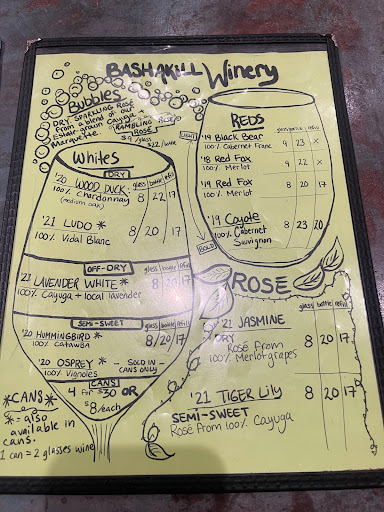 BASHAKILL Winery
Bubbles
DRY SPARKLING ROSÉ
from a blend of our
Estate grown Cayuga +
Marquette.
RAMBLING ROSE
ROSÉ
$9/glass
$22/bottle
Whites
DRY
glass bottle refill
'20 WOOD DUCK:
100% Chardonnay
(medium oak)
8 22 17
'21 LUDO *
100% Vidal Blanc
8 20 17
OFF-DRY
glass bottle refill
'21 LAVENDER WHITE *
100% Cayuga + local lavender
8 20 17
SEMI-SWEET
glass bottle refill
'20 HUMMINGBIRD *
100% CATAWBA
8 20 17
'20 OSPREY *
100% Vignoles
- SOLD IN -
CANS ONLY
CANS
4 For $30 OR
$8/each
*CANS*
* = also
available in
cans.
1 can = 2 glasses wine
REDS
LIGHT
glass bottle refill
'19 Black Bear
100% Cabernet Franc
9 23 x
'18 Red Fox
100% Merlot
9 22 x
'19 Red Fox
100% Merlot
8 20 17
'19 Coyote
100% Cabernet
Sauvignon
8 23 20
BOLD
ROSÉ
glass bottle refill
'21 JASMINE
DRY
Rosé from
100% Merlot grapes
8 20 17
'21 TIGER Lily
SEMI-SWEET
Rosé from 100% Cayuga
8 20 17